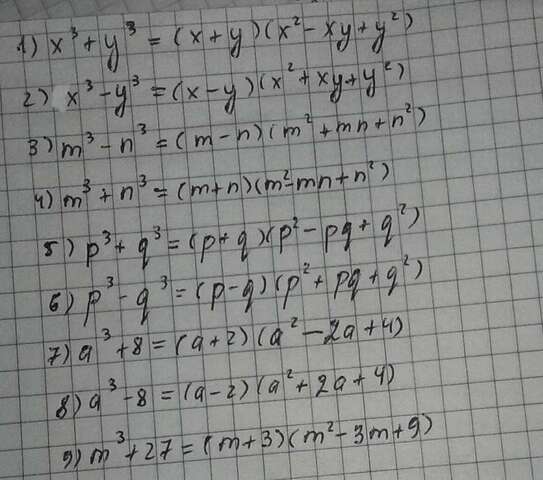 1) x³ + y³ = (x + y)(x² - xy + y²)
2) x³ - y³ = (x - y)(x² + xy + y²)
3) m³ - n³ = (m - n)(m² + mn + n²)
4) m³ + n³ = (m + n)(m² - mn + n²)
5) p³ + q³ = (p + q)(p² - pq + q²)
6) p³ - q³ = (p - q)(p² + pq + q²)
7) a³ + 8 = (a + 2)(a² - 2a + 4)
8) a³ - 8 = (a - 2)(a² + 2a + 4)
9) m³ + 27 = (m + 3)(m² - 3m + 9)